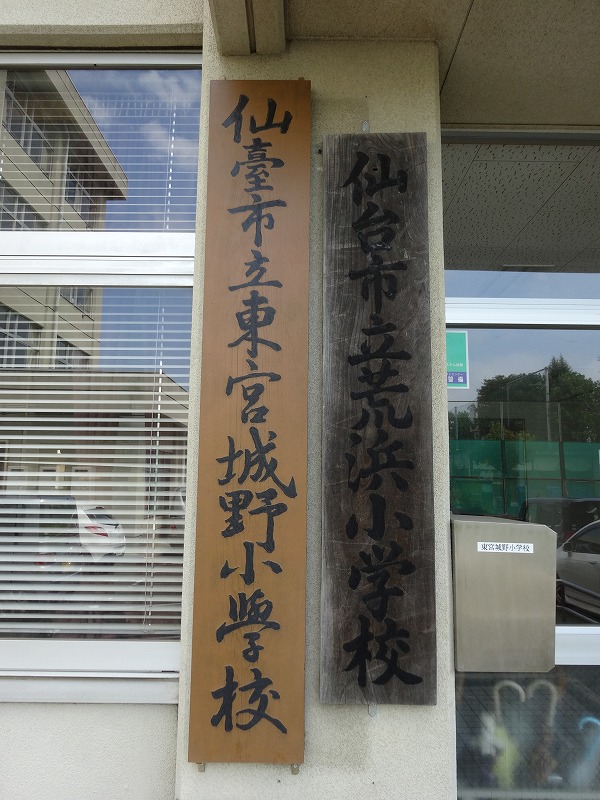 仙臺市立東宮城野小學校
仙台市立荒浜小学校
東宮城野小学校